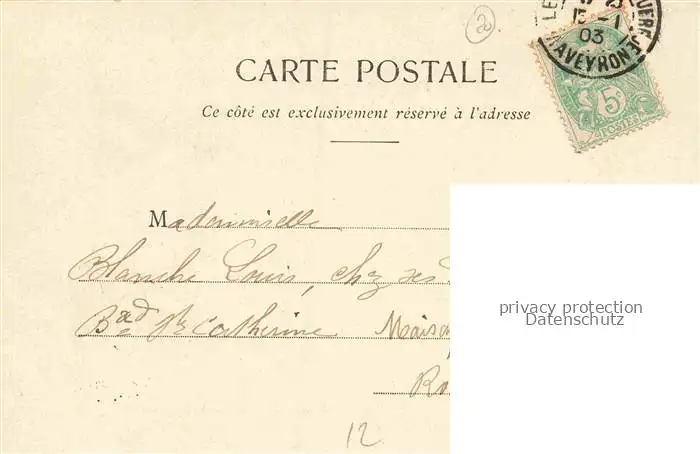 20
5 -1
03
AVEYRON
5c
POSTES
CARTE POSTALE
Ce côté est exclusivement réservé à l'adresse
Mademoiselle
Blanche Louis, chez ses
Bad Ste Catherine Maiso
Ro
privacy protection
Datenschutz
12